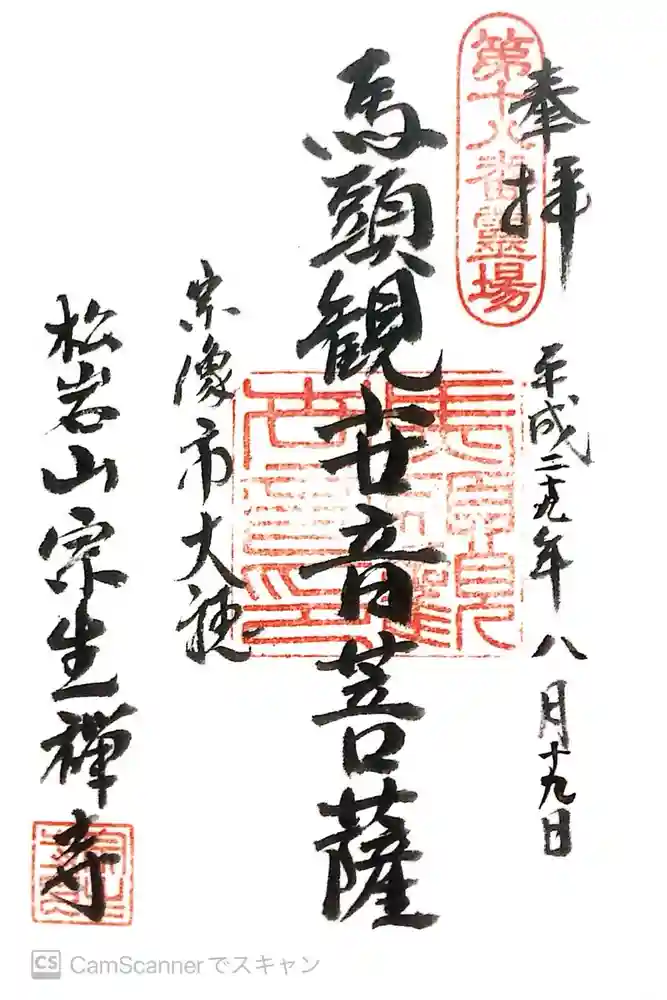 奉拝
第十八番霊場
平成二十九年八月十九日
馬頭観世音菩薩
宗像市大穂
松岩山宗生禅寺
CS CamScannerでスキャン